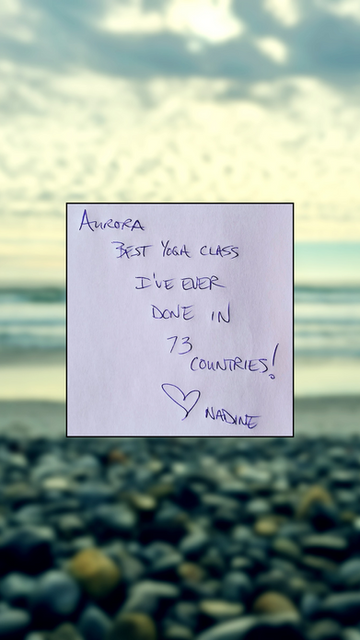 AURORA
BEST YOGA CLASS
I'VE EVER
DONE IN
73
COUNTRIES!
♡ NADINE